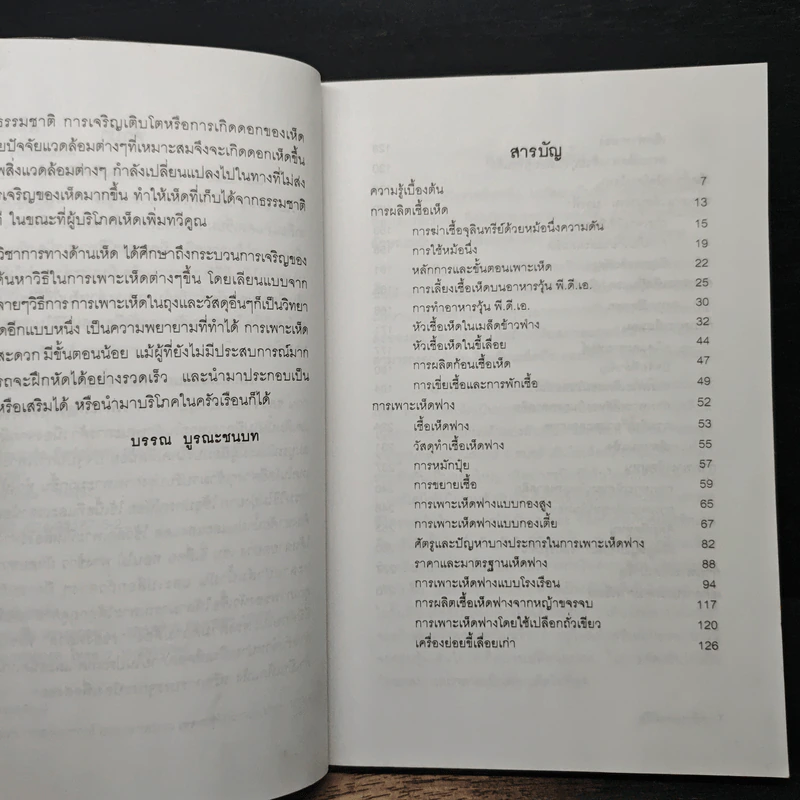 ธรรมชาติ การเจริญเติบโตหรือการเกิดดอกของเห็ด
ยปัจจัยแวดล้อมต่างๆที่เหมาะสมจึงจะเกิดดอกเห็ดขึ้น
พสิ่งแวดล้อมต่างๆ กำลังเปลี่ยนแปลงไปในทางที่ไม่ส่ง
รเจริญของเห็ดมากขึ้น ทำให้เห็ดที่เก็บได้จากธรรมชาติ
ที่ ในขณะที่ผู้บริโภคเห็ดเพิ่มทวีคูณ
วิชาการทางด้านเห็ด ได้ศึกษาถึงกระบวนการเจริญของ
ค้นหาวิธีในการเพาะเห็ดต่างๆขึ้น โดยเลียนแบบจาก
ลายๆวิธีการ การเพาะเห็ดในถุงและวัสดุอื่นๆก็เป็นวิทยา
ดอีกแบบหนึ่ง เป็นความพยายามที่ทำได้ การเพาะเห็ด
สะดวก มีขั้นตอนน้อย แม้ผู้ที่ยังไม่มีประสบการณ์มาก
รถจะฝึกหัดได้อย่างรวดเร็ว และนำมาประกอบเป็น
หรือเสริมได้ หรือนำมาบริโภคในครัวเรือนก็ได้
บรรณ บูรณะชนบท
สารบัญ
ความรู้เบื้องต้น 7
การผลิตเชื้อเห็ด 13
การฆ่าเชื้อจุลินทรีย์ด้วยหม้อนึ่งความดัน 15
การใช้หม้อนึ่ง 19
หลักการและขั้นตอนเพาะเห็ด 22
การเลี้ยงเชื้อเห็ดบนอาหารวุ้น พี.ดี.เอ. 25
การทำอาหารวุ้น พี.ดี.เอ. 30
หัวเชื้อเห็ดในเมล็ดข้าวฟ่าง 32
หัวเชื้อเห็ดในขี้เลื่อย 44
การผลิตก้อนเชื้อเห็ด 47
การเขี่ยเชื้อและการพักเชื้อ 49
การเพาะเห็ดฟาง 52
เชื้อเห็ดฟาง 53
วัสดุทำเชื้อเห็ดฟาง 55
การหมักปุ๋ย 57
การขยายเชื้อ 59
การเพาะเห็ดฟางแบบกองสูง 65
การเพาะเห็ดฟางแบบกองเตี้ย 67
ศัตรูและปัญหาบางประการในการเพาะเห็ดฟาง 82
ราคาและมาตรฐานเห็ดฟาง 88
การเพาะเห็ดฟางแบบโรงเรือน 94
การผลิตเชื้อเห็ดฟางจากหญ้าขจรจบ 117
การเพาะเห็ดฟางโดยใช้เปลือกถั่วเขียว 120
เครื่องย่อยขี้เลื่อยเก่า 126